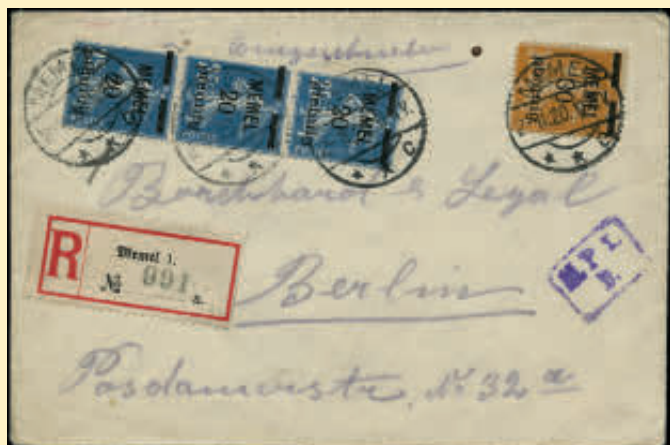 Einschreiben
MEMEL
20
Pfennig
MEMEL
20
Pfennig
MEMEL
20
Pfennig
MEMEL
30
Pfennig
Borchhardt & Legal
R
Memel 1.
№ 991 a.
M. P. I.
B.
Berlin
Posdamerstr. № 32 a